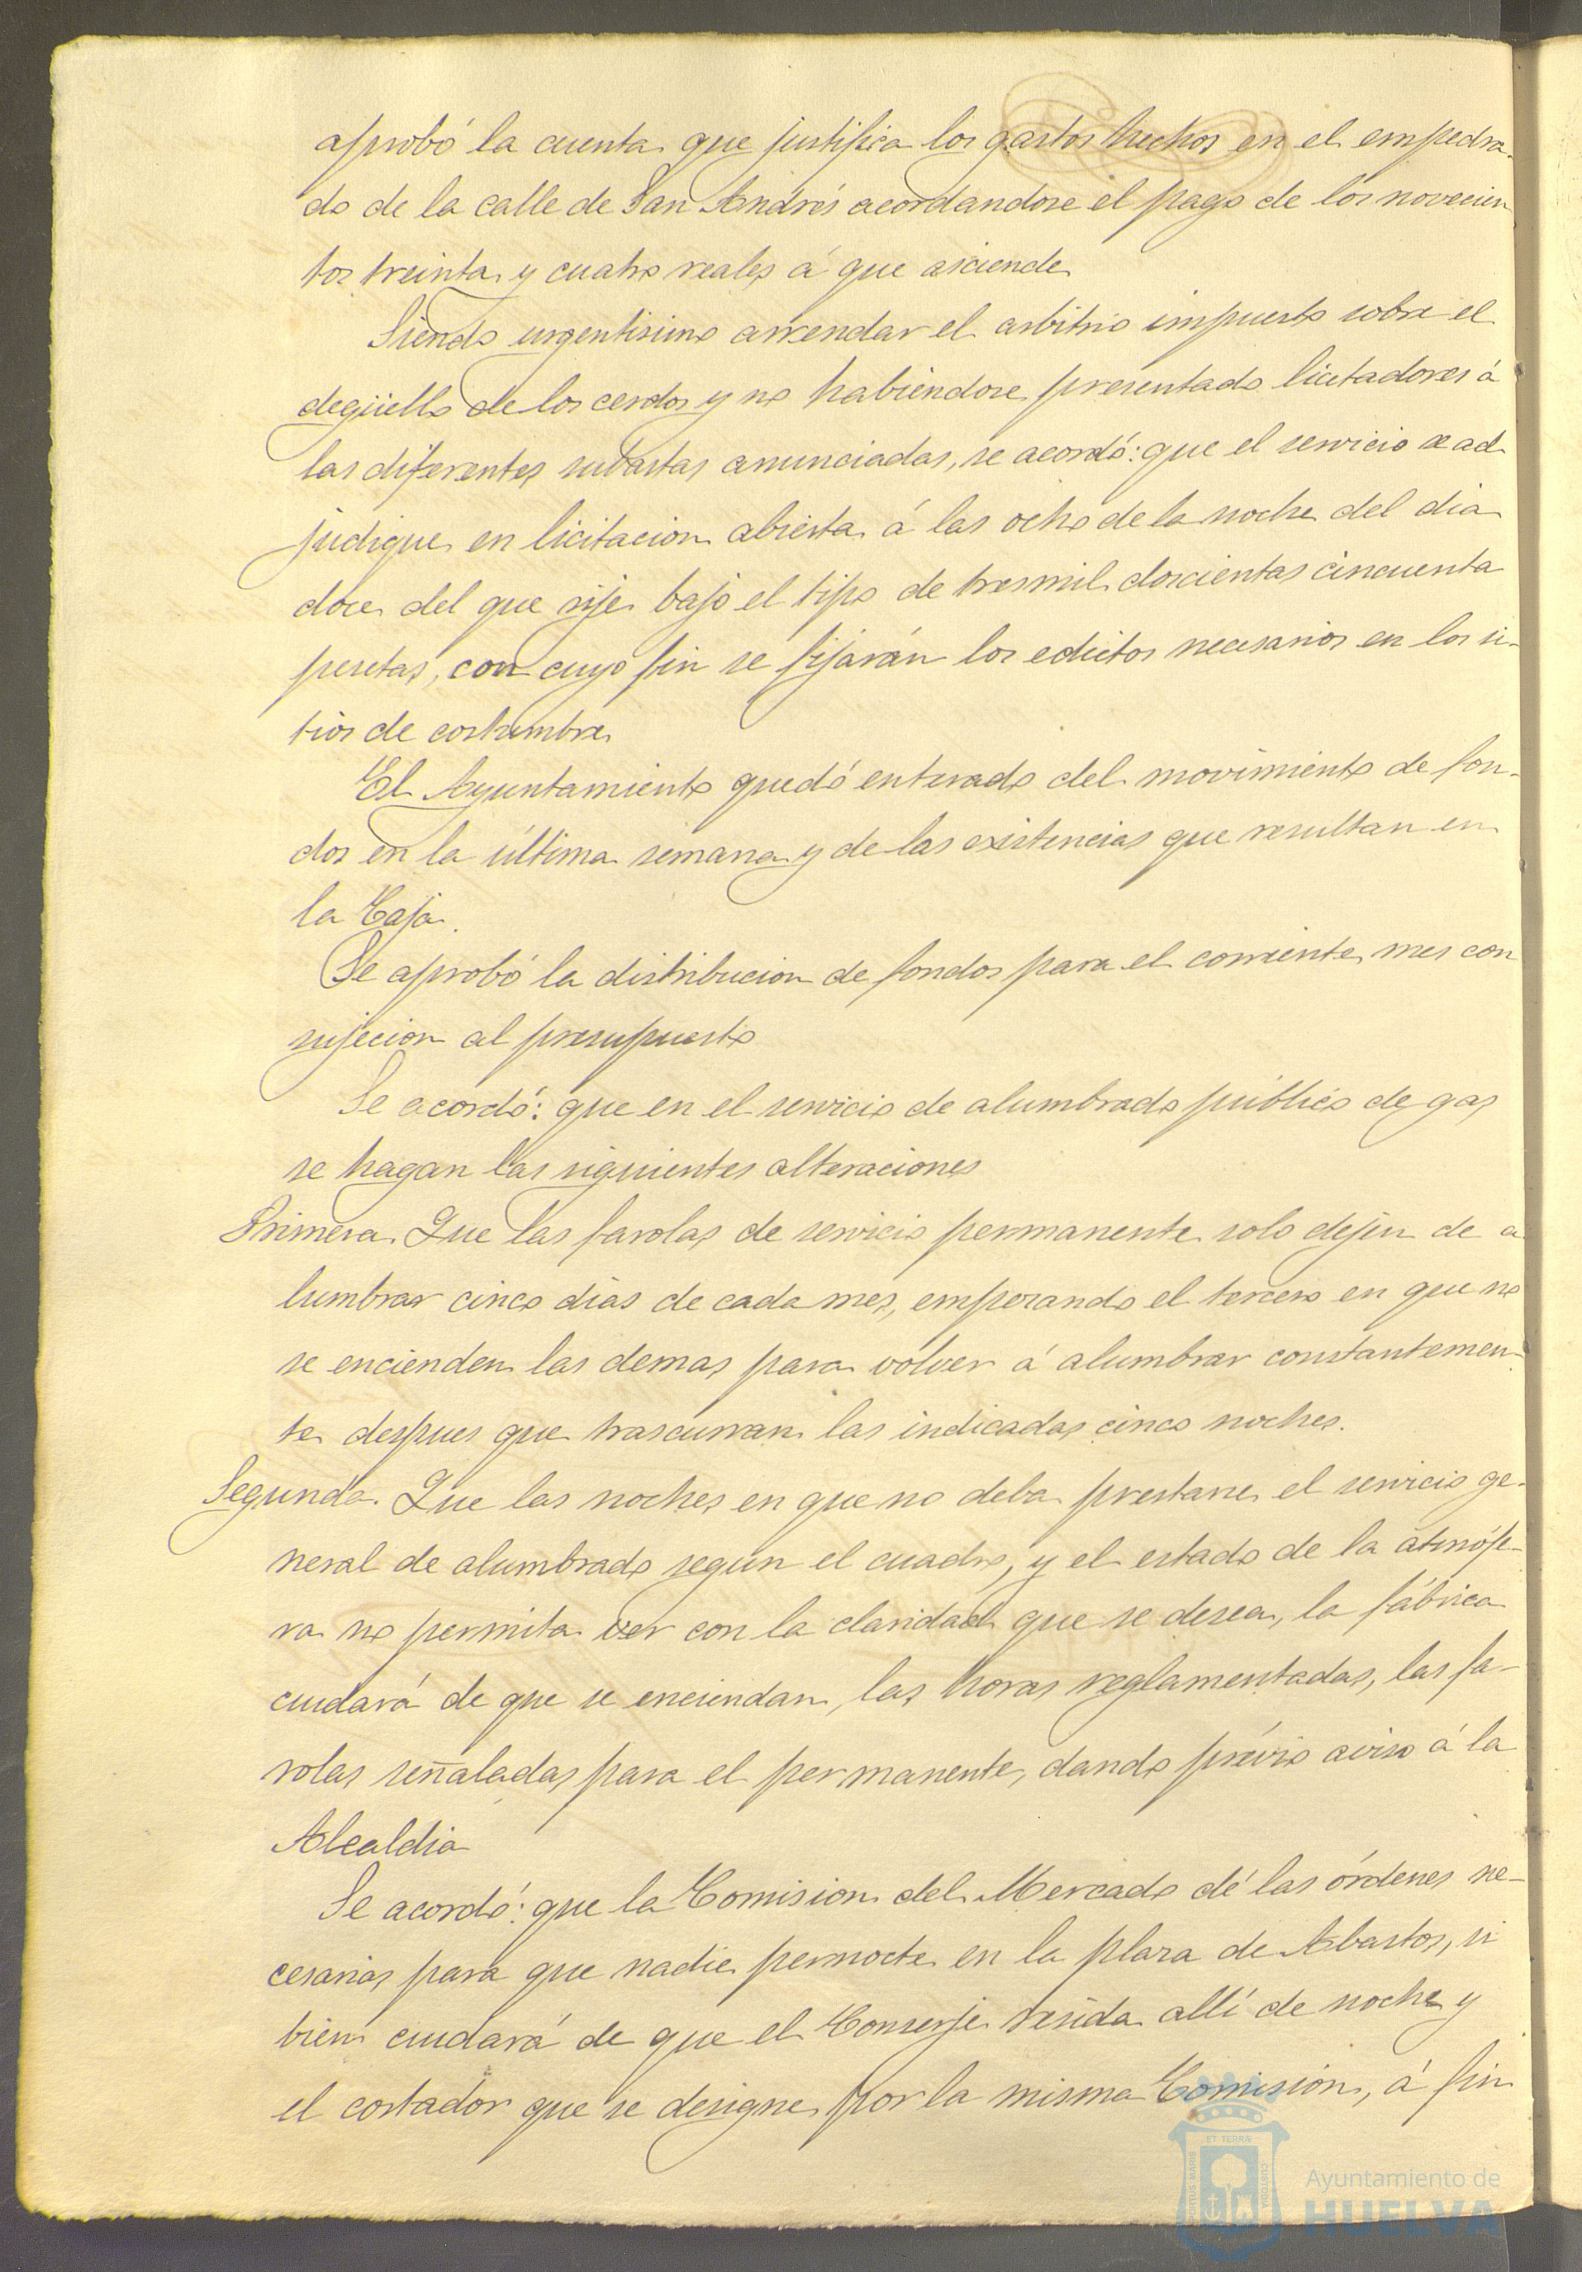 aprobó la cuenta que justifica los gastos hechos en el empedra-
do de la calle de San Andrés acordandose el pago de los novecien
tos treinta y cuatro reales á que asciende
Siendo urgentisimo arrendar el arbitrio impuesto sobre el
degüello de los cerdos y no habiendose presentado licitadores á
las diferentes subastas anunciadas, se acordó: que el servicio se ad-
judique en licitacion abierta á las ocho de la noche del dia
doce del que rije bajo el tipo de tresmil doscientas cincuenta
pesetas, con cuyo fin se fijarán los edictos necesarios en los si-
tios de costumbre
El Ayuntamiento quedó enterado del movimiento de fon-
dos en la última semana y de las existencias que resultan en
la Caja.
Se aprobó la distribucion de fondos para el corriente mes con
sujecion al presupuesto
Se acordó: que en el servicio de alumbrado público de gas
se hagan las siguientes alteraciones
Primera. Que las farolas de servicio permanente solo dejen de a
lumbrar cinco dias de cada mes, empezando el tercero en que no
se encienden las demas para volver á alumbrar constantemen-
te despues que trascurran las indicadas cinco noches.
Segunda. Que las noches en que no deba prestarse el servicio ge-
neral de alumbrado segun el cuadro, y el estado de la atmósfe-
ra no permita ver con la claridad que se desea, la fábrica
cuidará de que se enciendan, las horas reglamentadas, las fa-
rolas señaladas para el permanente, dando prévio aviso á la
Alcaldia
Se acordó: que la Comision del Mercado dé las órdenes ne-
cesarias para que nadie pernocte en la plaza de Abastos, si
bien cuidará de que el Conserje resida allí de noche y
el cortador que se designe por la misma Comision, á fin
ET TERRÆ
PORTUS MARIS
CUSTODIA
Ayuntamiento de
HUELVA